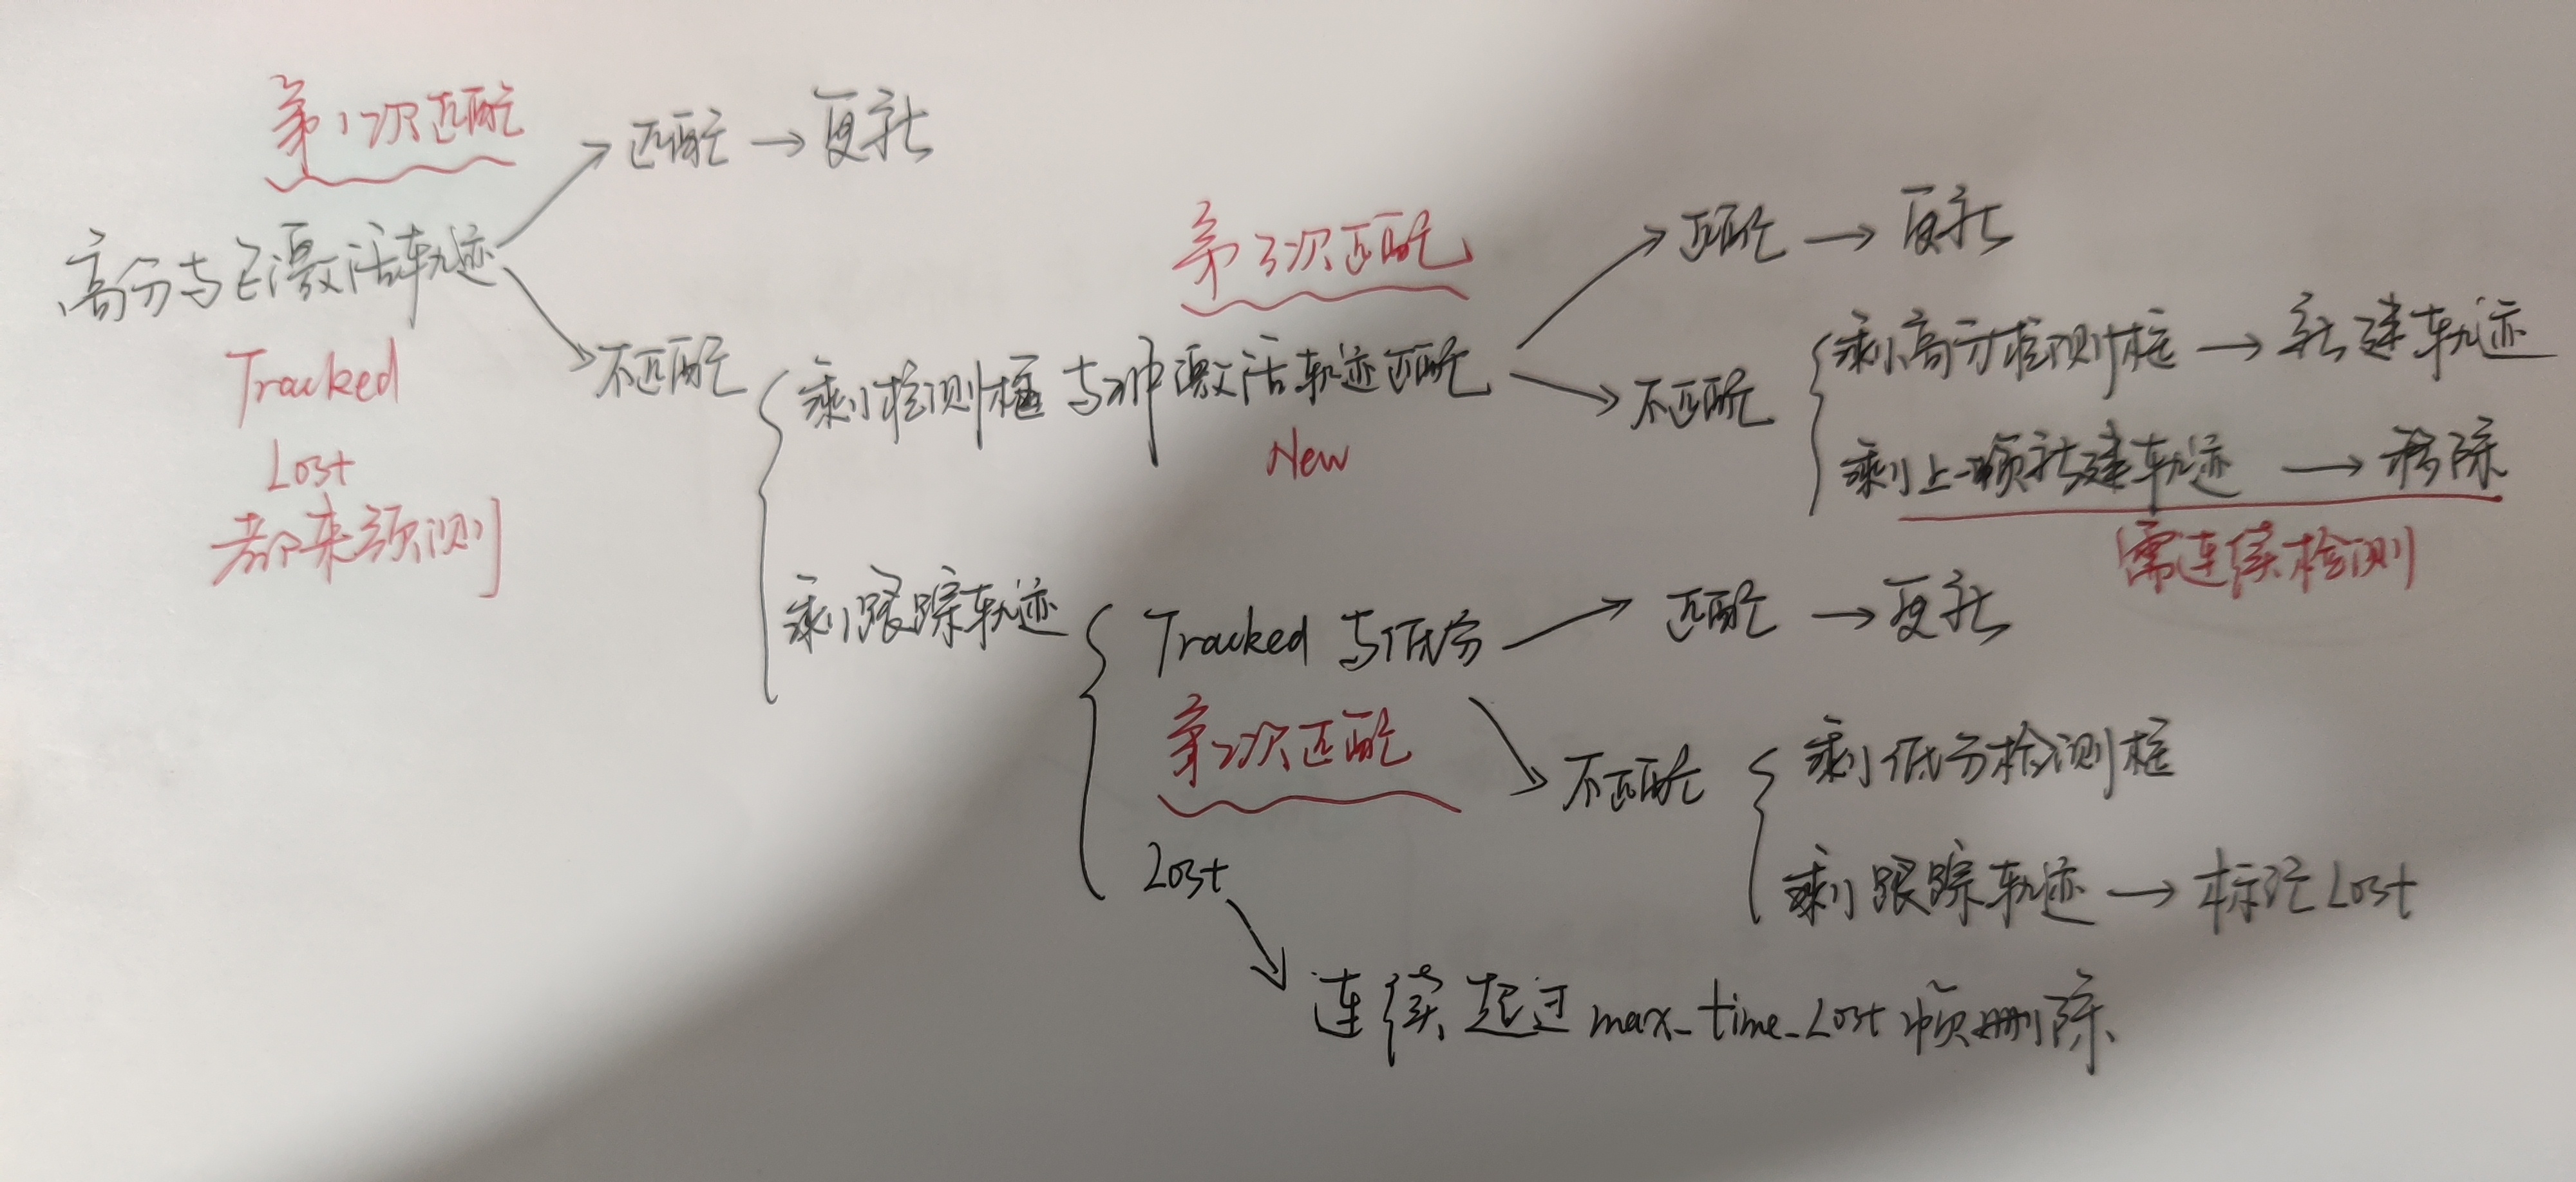 第1次匹配
匹配 → 更新
高分与已激活轨迹
Tracked
Lost
都来预测
不匹配
第3次匹配
剩检测框与冲激活轨迹匹配
New
匹配 → 更新
不匹配
剩高分检测框 → 新建轨迹
剩上一帧新建轨迹 → 移除
需连续检测
剩跟踪轨迹
Tracked 与低分
第2次匹配
匹配 → 更新
不匹配
剩低分检测框
剩跟踪轨迹 → 标记Lost
Lost
连续超过max_time_Lost帧删除